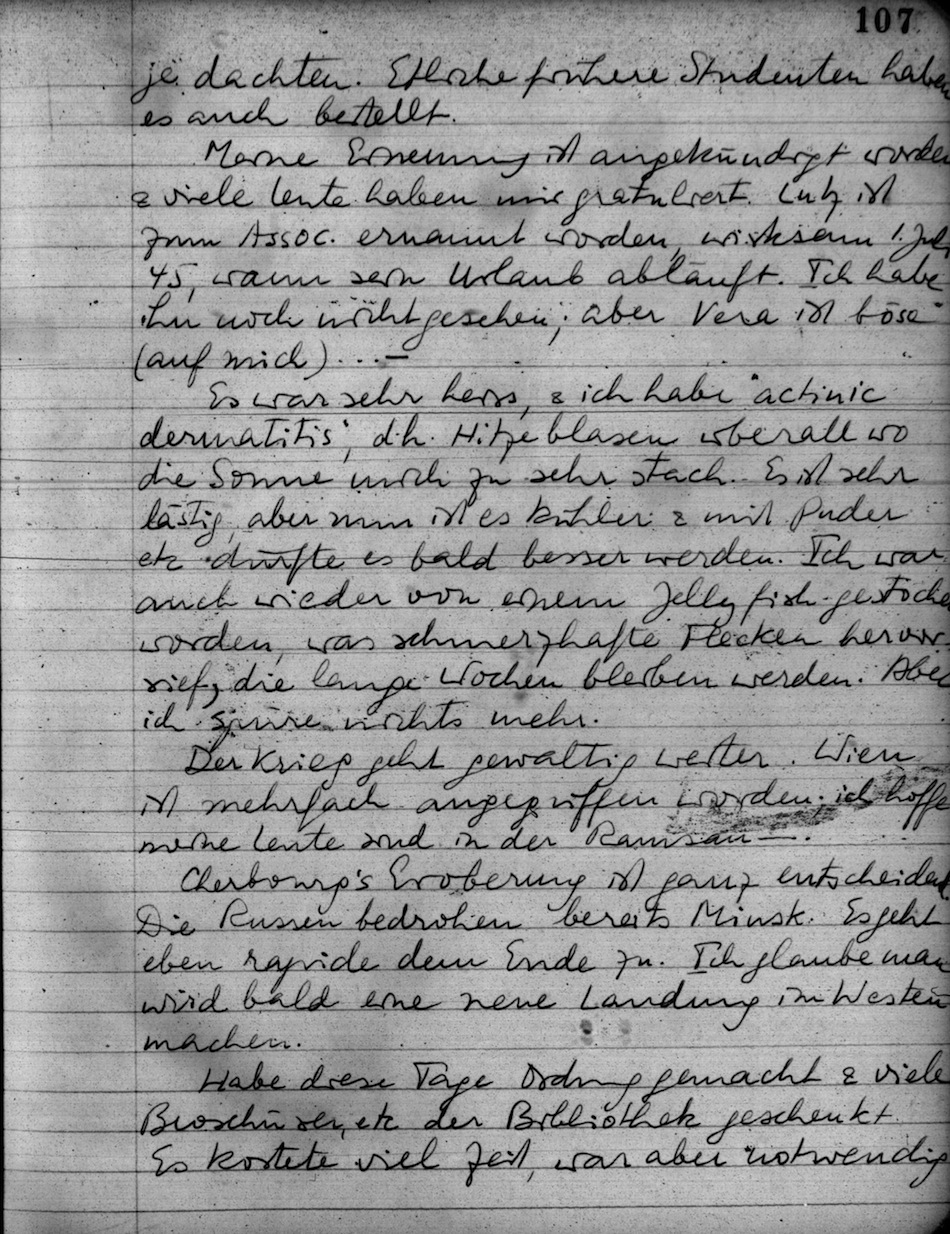 107
je dachten. Etliche frühere Studenten haben
es auch bestellt.
Meine Ernennung ist angekündigt worden
& viele Leute haben mir gratuliert. Lutz ist
zum Assoc. ernannt worden, wirksam 1. July
45, wann sein Urlaub abläuft. Ich habe
ihn noch nicht gesehen; aber Vera ist böse
(auf mich) ... —
Es war sehr heiss, & ich habe "actinic
dermatitis", d.h. Hitzeblasen überall wo
die Sonne mich zu sehr stach. Es ist sehr
lästig, aber nun ist es kühler & mit Puder
etc dürfte es bald besser werden. Ich war
auch wieder von einem Jelly fish gestochen
worden, was schmerzhafte Flecken hervor-
rief, die lange Wochen bleiben werden. Aber
ich spüre nichts mehr.
Der Krieg geht gewaltig weiter. Wien
ist mehrfach angegriffen worden; ich hoffe
meine Leute sind in der Ramsau —.
Cherbourg's Eroberung ist ganz entscheidend.
Die Russen bedrohen bereits Minsk. Es geht
eben rapide dem Ende zu. Ich glaube man
wird bald eine neue Landung im Westen
machen.
Habe diese Tage Ordnung gemacht & viele
Broschüren, etc der Bibliothek geschenkt.
Es kostete viel Zeit, war aber notwendig